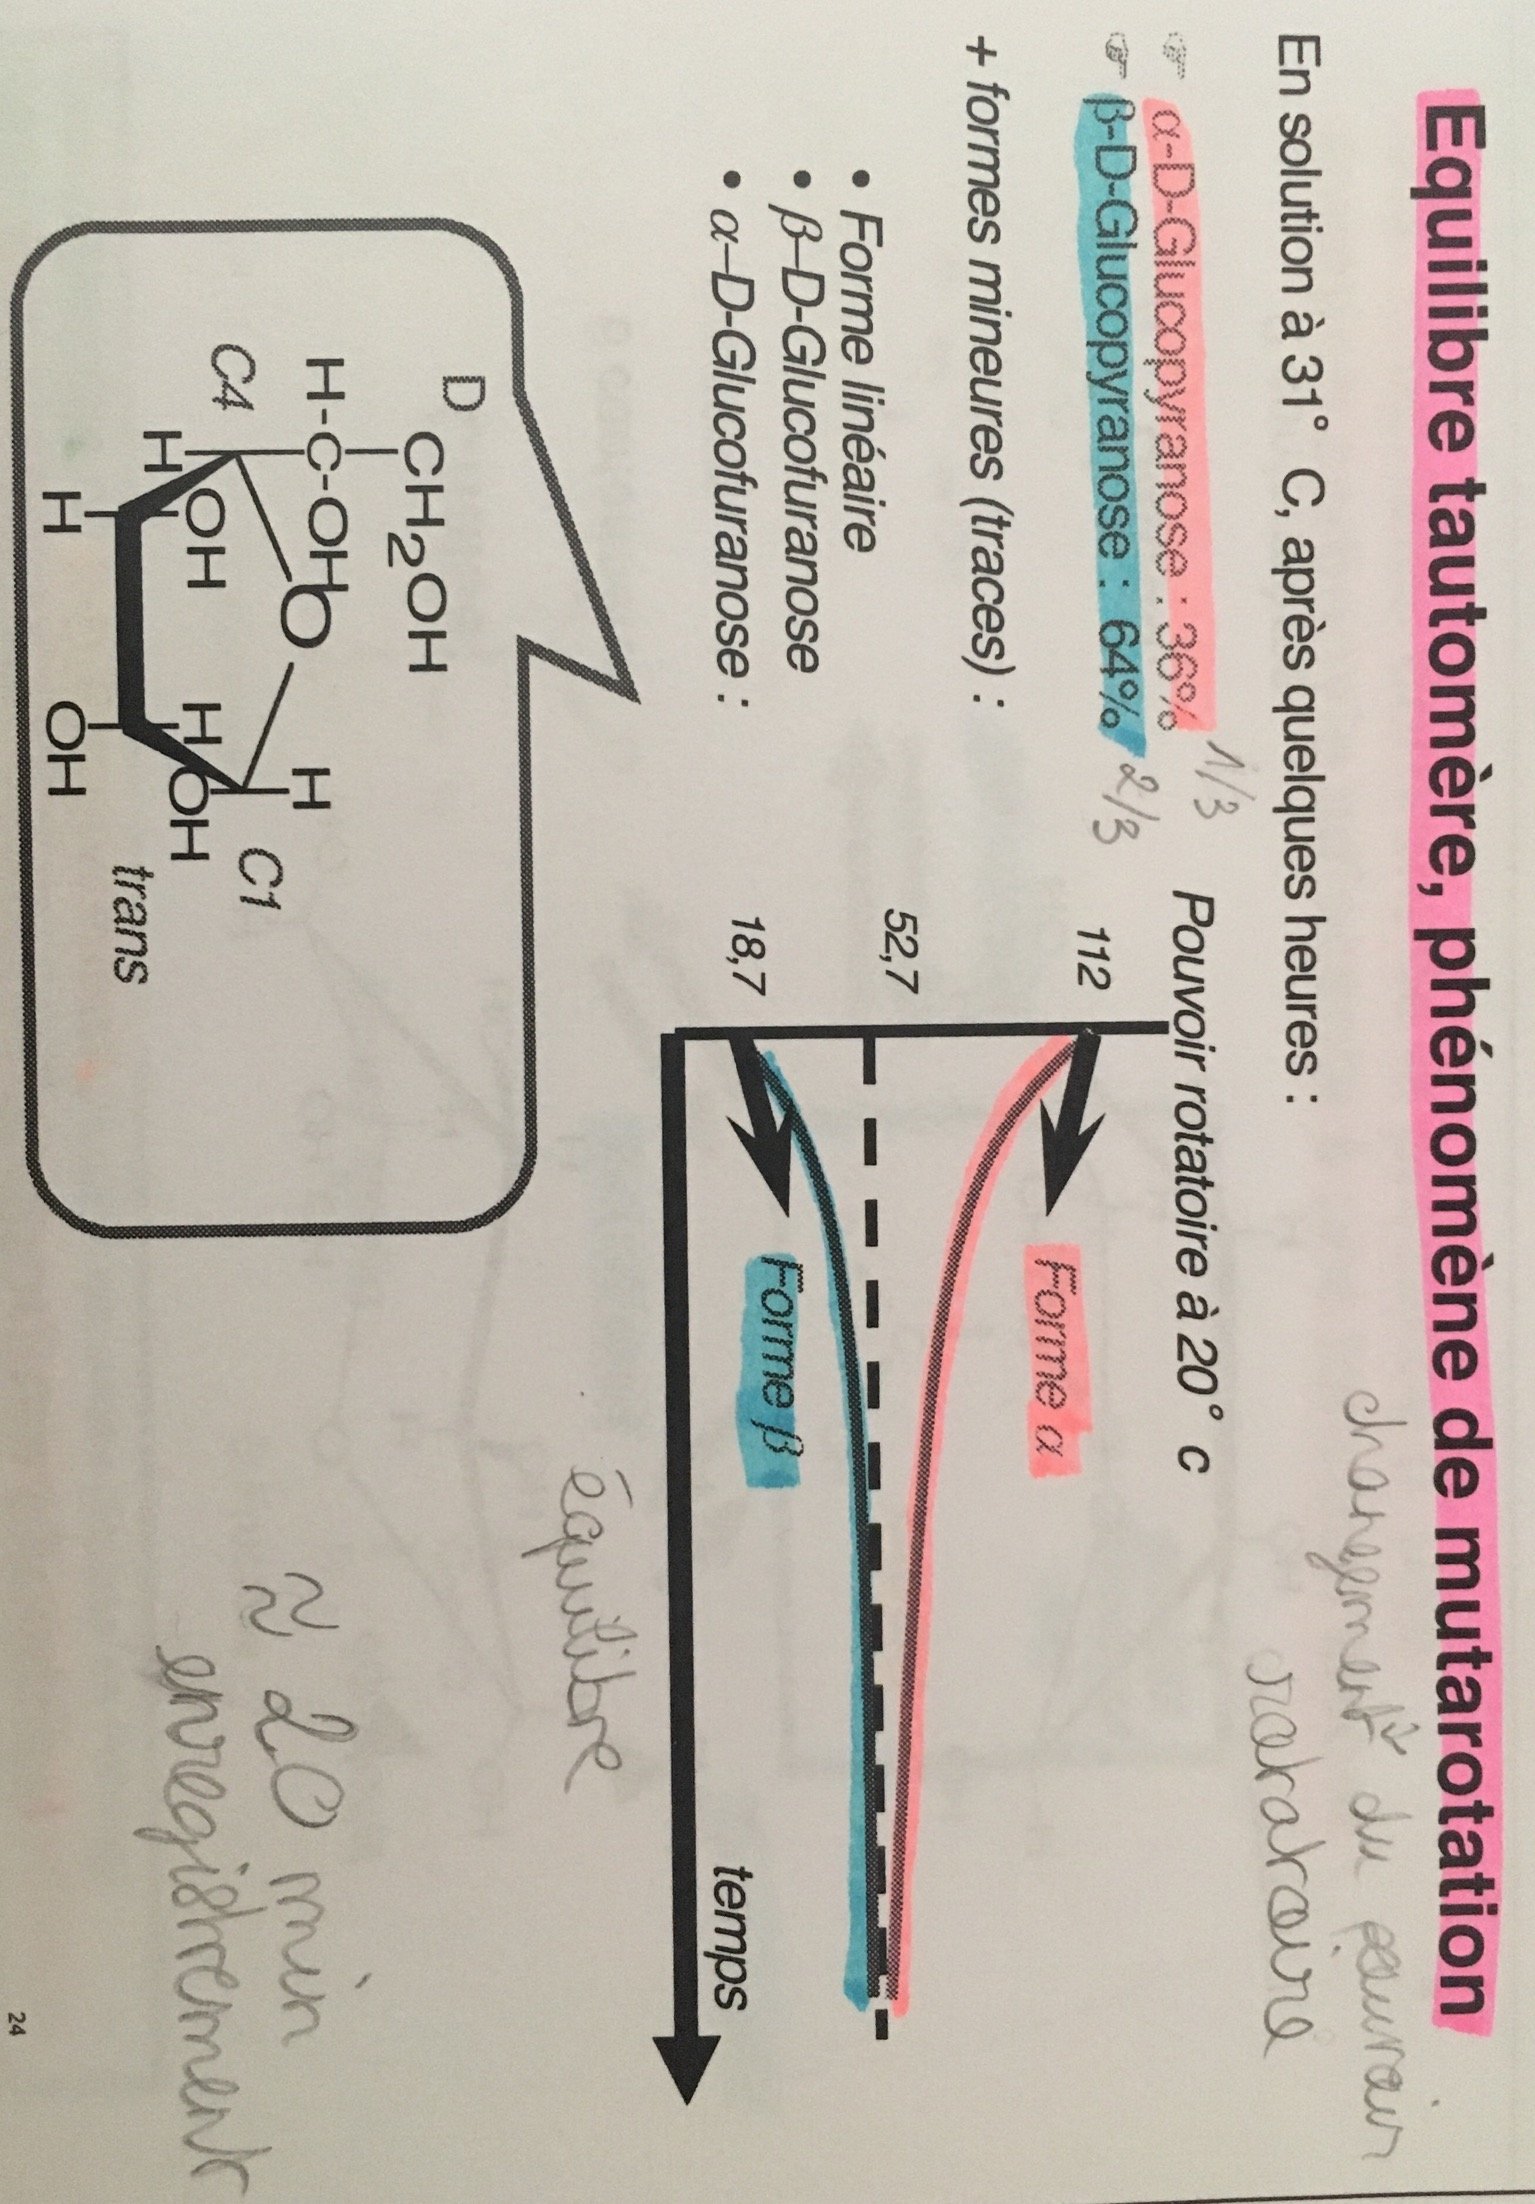 Equilibre tautomère, phénomène de mutarotation
changement du pouvoir
rotatoire
En solution à 31° C, après quelques heures :
☞ α-D-Glucopyranose : 36% 1/3
☞ β-D-Glucopyranose : 64% 2/3
+ formes mineures (traces) :
• Forme linéaire
• β-D-Glucofuranose
• α-D-Glucofuranose :
Pouvoir rotatoire à 20° c
112
Forme α
52,7
18,7
Forme β
temps
équilibre
≈ 20 min
enregistrement
D
CH2OH
H-C-OH
O
H
C4
C1
H
OH
H
OH
H
OH
trans
24